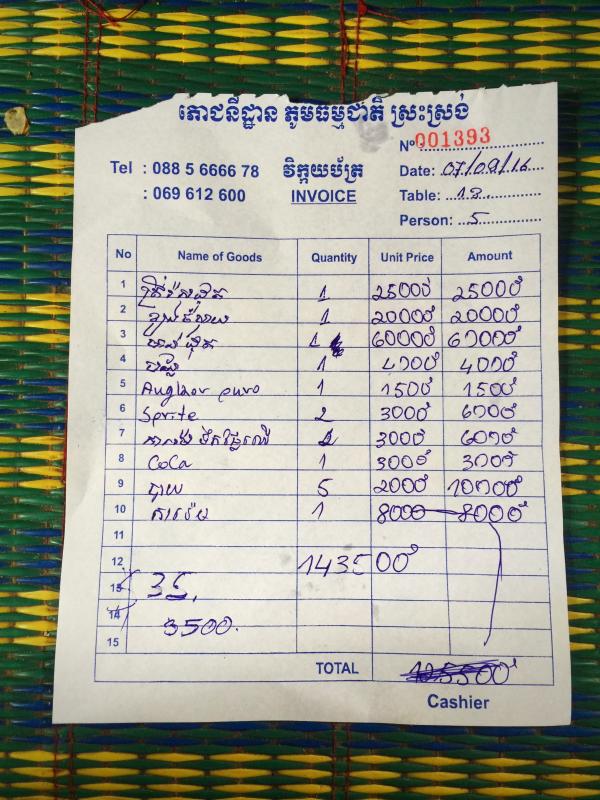 ភោជនីដ្ឋាន ភូមិធម្មជាតិ ស្រះស្រង់
Nº 001393
Tel : 088 5 6666 78 វិក្កយប័ត្រ Date: 07/09/16
: 069 612 600 INVOICE Table: 18
Person: 5
No Name of Goods Quantity Unit Price Amount
1 1 25000៛ 25000៛
2 1 20000៛ 20000៛
3 1 60000៛ 60000៛
4 1 4000៛ 4000៛
5 Angkor puro 1 1500៛ 1500៛
6 Sprite 2 3000៛ 6000៛
7 2 3000៛ 6000៛
8 CoCa 1 3000៛ 3000៛
9 បាយ 5 2000៛ 10000៛
10 ការ៉េម 1 8000 8000៛
11
12 143500៛
13 35,
14 3500.
15
TOTAL
Cashier